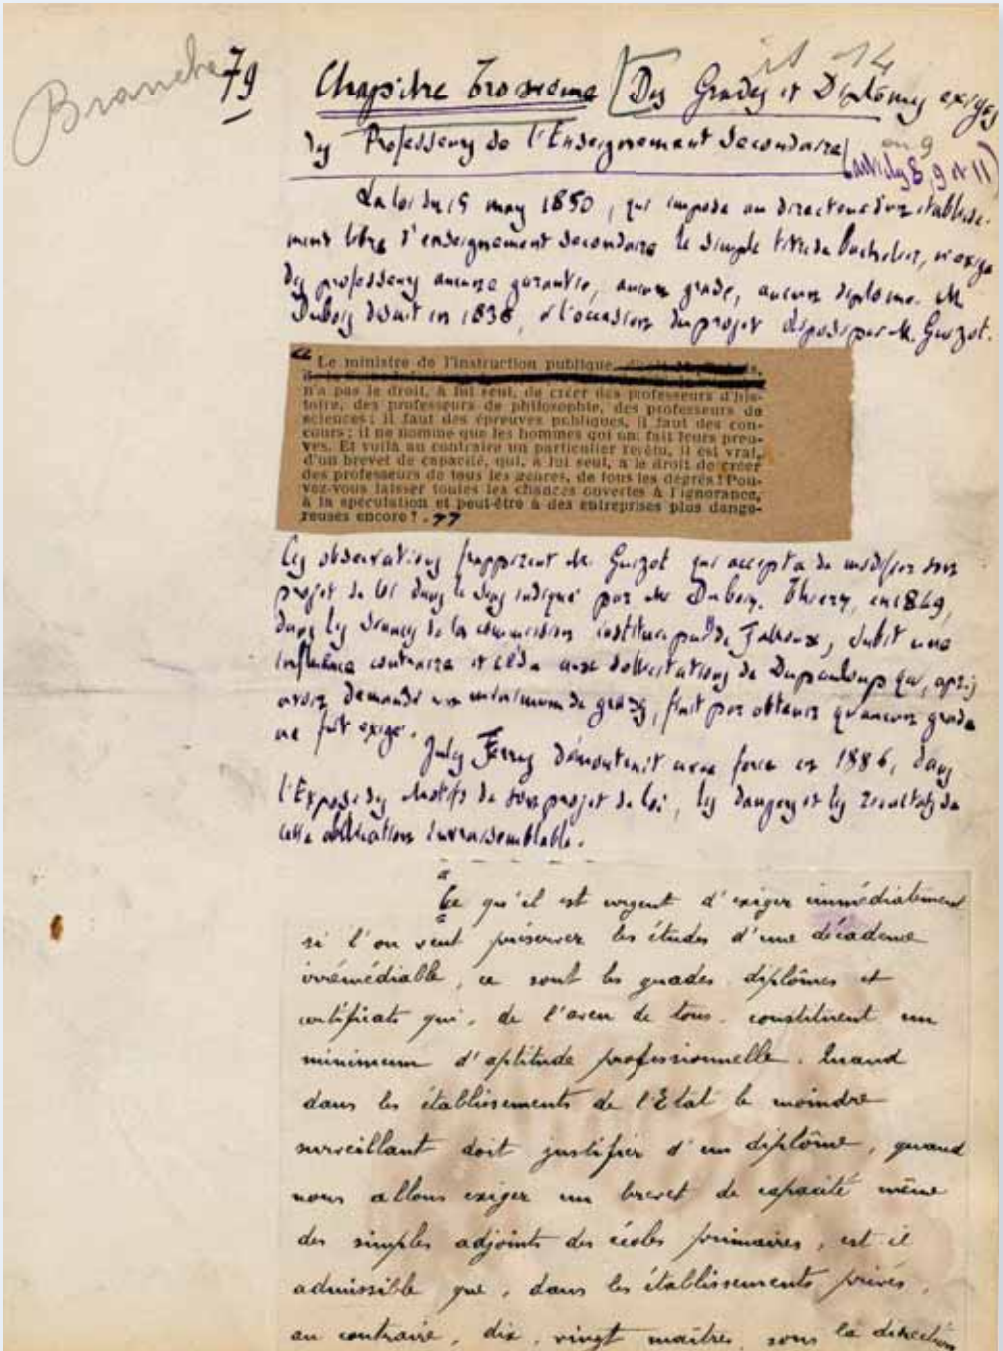 Branche
79
is 14
Chapitre Troisième Des Grades et Diplômes exigés
des Professeurs de l'Enseignement Secondaire
ou 9
(articles 8, 9 et 11)
La loi du 15 mars 1850, qui impose au directeur d'un établisse-
ment libre d'enseignement secondaire le simple titre de bachelier, n'exige
des professeurs aucune garantie, aucun grade, aucun diplôme. M.
Dubois disait en 1836, à l'occasion du projet déposé par M. Guizot.
« Le ministre de l'instruction publique,
n'a pas le droit, à lui seul, de créer des professeurs d'his-
toire, des professeurs de philosophie, des professeurs de
sciences; il faut des épreuves publiques, il faut des con-
cours; il ne nomme que les hommes qui ont fait leurs preu-
ves. Et voilà au contraire un particulier revêtu, il est vrai,
d'un brevet de capacité, qui, à lui seul, a le droit de créer
des professeurs de tous les genres, de tous les degrés! Pou-
vez-vous laisser toutes les chances ouvertes à l'ignorance,
à la spéculation et peut-être à des entreprises plus dange-
reuses encore? . »
Ces observations frappèrent M. Guizot qui accepta de modifier son
projet de loi dans le sens indiqué par M. Dubois. Thiers, en 1849,
dans les séances de la commission instituée par M. de Falloux, subit une
influence contraire et céda aux sollicitations de Dupanloup qui, après
avoir demandé un minimum de grades, finit par obtenir qu'aucun grade
ne fût exigé.
Jules Ferry démontrait avec force en 1886, dans
l'Exposé des Motifs de son projet de loi, les dangers et les résultats de
cette invraisemblable.
« Ce qu'il est urgent d'exiger immédiatement
si l'on veut préserver les études d'une décadence
irrémédiable, ce sont les grades, diplômes et
certificats qui, de l'aveu de tous, constituent un
minimum d'aptitude professionnelle. Quand
dans les établissements de l'Etat le moindre
surveillant doit justifier d'un diplôme, quand
nous allons exiger un brevet de capacité même
des simples adjoints des écoles primaires, est il
admissible que, dans les établissements privés,
au contraire, dix, vingt maîtres, sous la direction